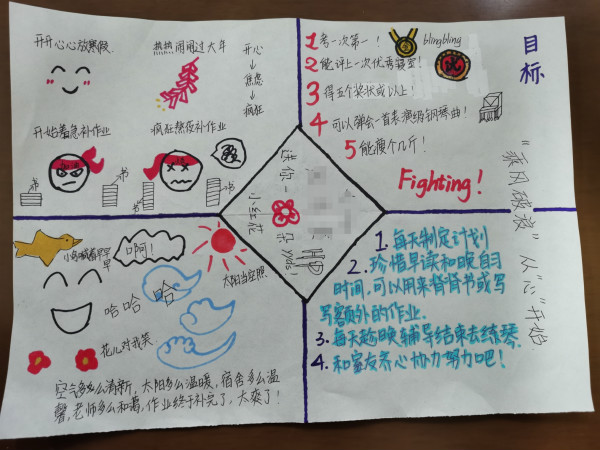 开开心心放寒假
热热闹闹过大年
开心
↓
焦虑
↓
疯狂
开始着急补作业
疯狂熬夜补作业
书
书
书
书
目标
1 考一次第一！
blingbling
2 能评上一次优秀寝室！
3 得五个奖状或以上！
4 可以弹会一首表演级钢琴曲！
5 能瘦个几斤！
Fighting！
"乘风破浪" 从"心"开始
送你一
朵
小红花
yyds!
小鸟喊着早早早
啊！
哈哈 哈
太阳当空照
花儿对我笑
空气多么清新，太阳多么温暖，宿舍多么温
馨，老师多么和蔼，作业终于补完了，太爽了！
1. 每天制定计划
2. 珍惜早读和晚自习
时间，可以用来背背书或写
写额外的作业.
3. 每天趁晚辅导结束去练琴.
4. 和室友齐心协力努力吧！